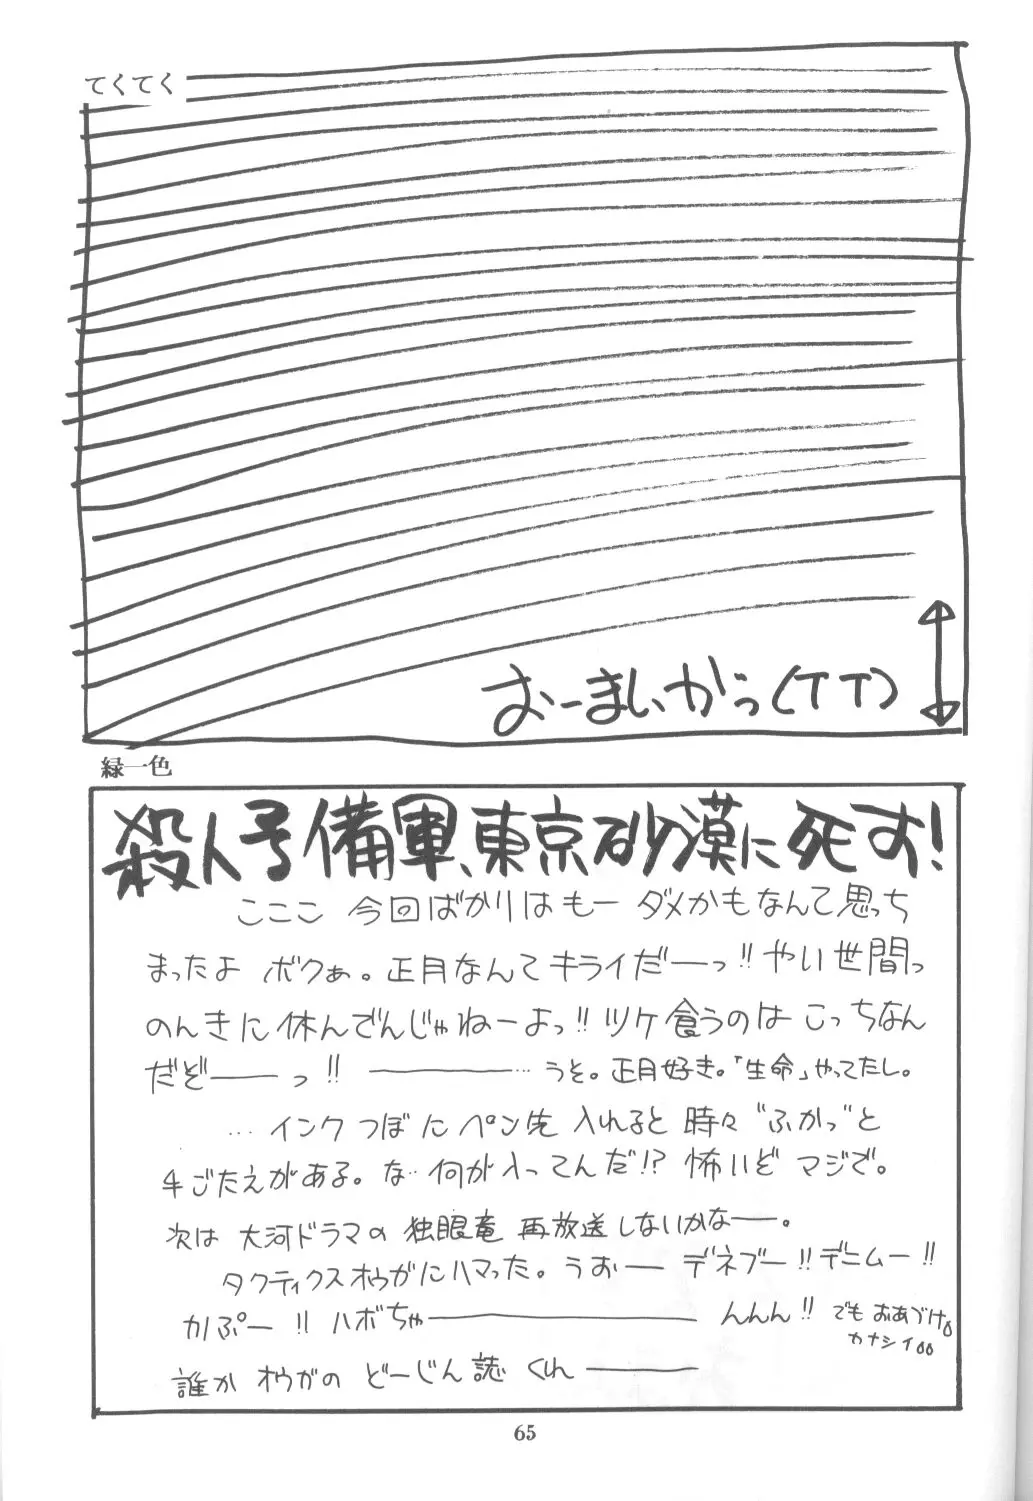 てくてく
おーまいかっ(TT)
緑一色
殺人予備軍、東京砂漠に死す!
こここ 今回ばかりはもー ダメかもなんて思っち
まったよ ボクぁ。正月なんてキライだーっ!! やい世間っ
のんきに休んでんじゃねーよっ!! ツケ食うのは こっちなん
だぞ――っ!! ―――――… うそ。正月好き。「生命」やってたし。
… インクつぼにペン先 入れると 時々 “ふかっ”と
手ごたえがある。な… 何が入ってんだ!? 怖いぞ マジで。
次は 大河ドラマの 独眼竜 再放送しないかなー。
タクティクスオウガにハマった。うおー デネブー!! デニムー!!
かぷー!! ハボちゃ――――――んんん!! でも おあづけ。
カナシイ。。
誰か オウガの どーじん誌 くれ ―――
65